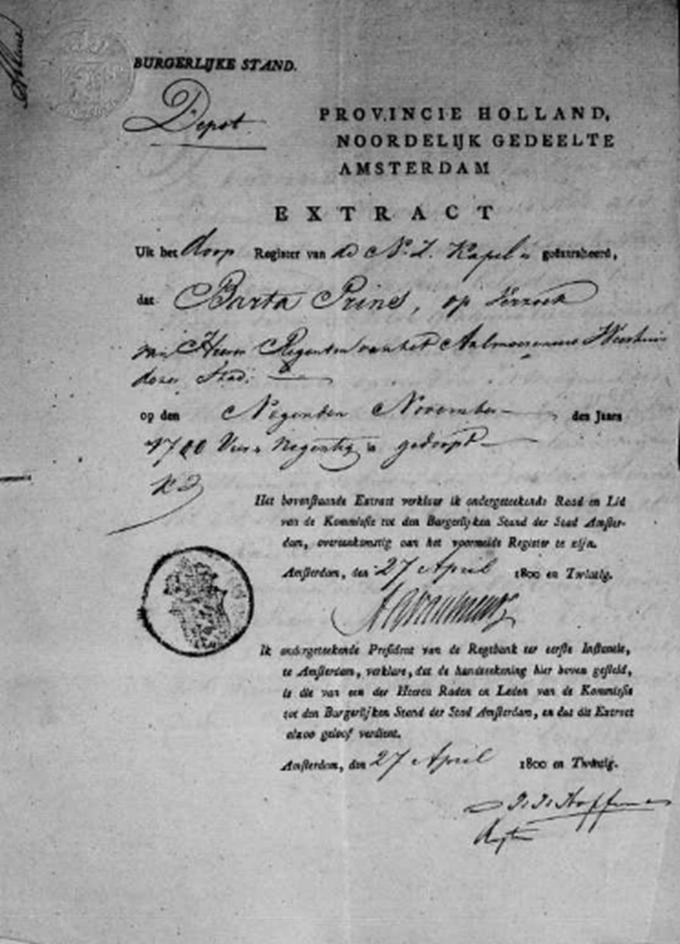 BURGERLIJKE STAND.
Depot
PROVINCIE HOLLAND,
NOORDELIJK GEDEELTE
AMSTERDAM
EXTRACT
Uit het doop Register van de N. Z. Kapel is geëxtraheerd,
dat Barta Prins, op verzoek
van Heeren Regenten van het Aalmoeseniers Weeshuis
dezer Stad.
op den Negenden November des Jaars
1700 Vier en Negentig is gedoopt
Het bovenstaande Extract verklaar ik ondergeteekende Raad en Lid
van de Kommissie tot den Burgerlijken Stand der Stad Amster-
dam, overeenkomstig aan het voormelde Register te zijn.
Amsterdam, den 27 April 1800 en Twintig.
Ik ondergeteekende President van de Regtbank ter eerste Instantie,
te Amsterdam, verklare, dat de handteekening hier boven gesteld,
is die van een der Heeren Raden en Leden van de Kommissie
tot den Burgerlijken Stand der Stad Amsterdam, en dat dit Extract
alzoo geloof verdient.
Amsterdam, den 27 April 1800 en Twintig.